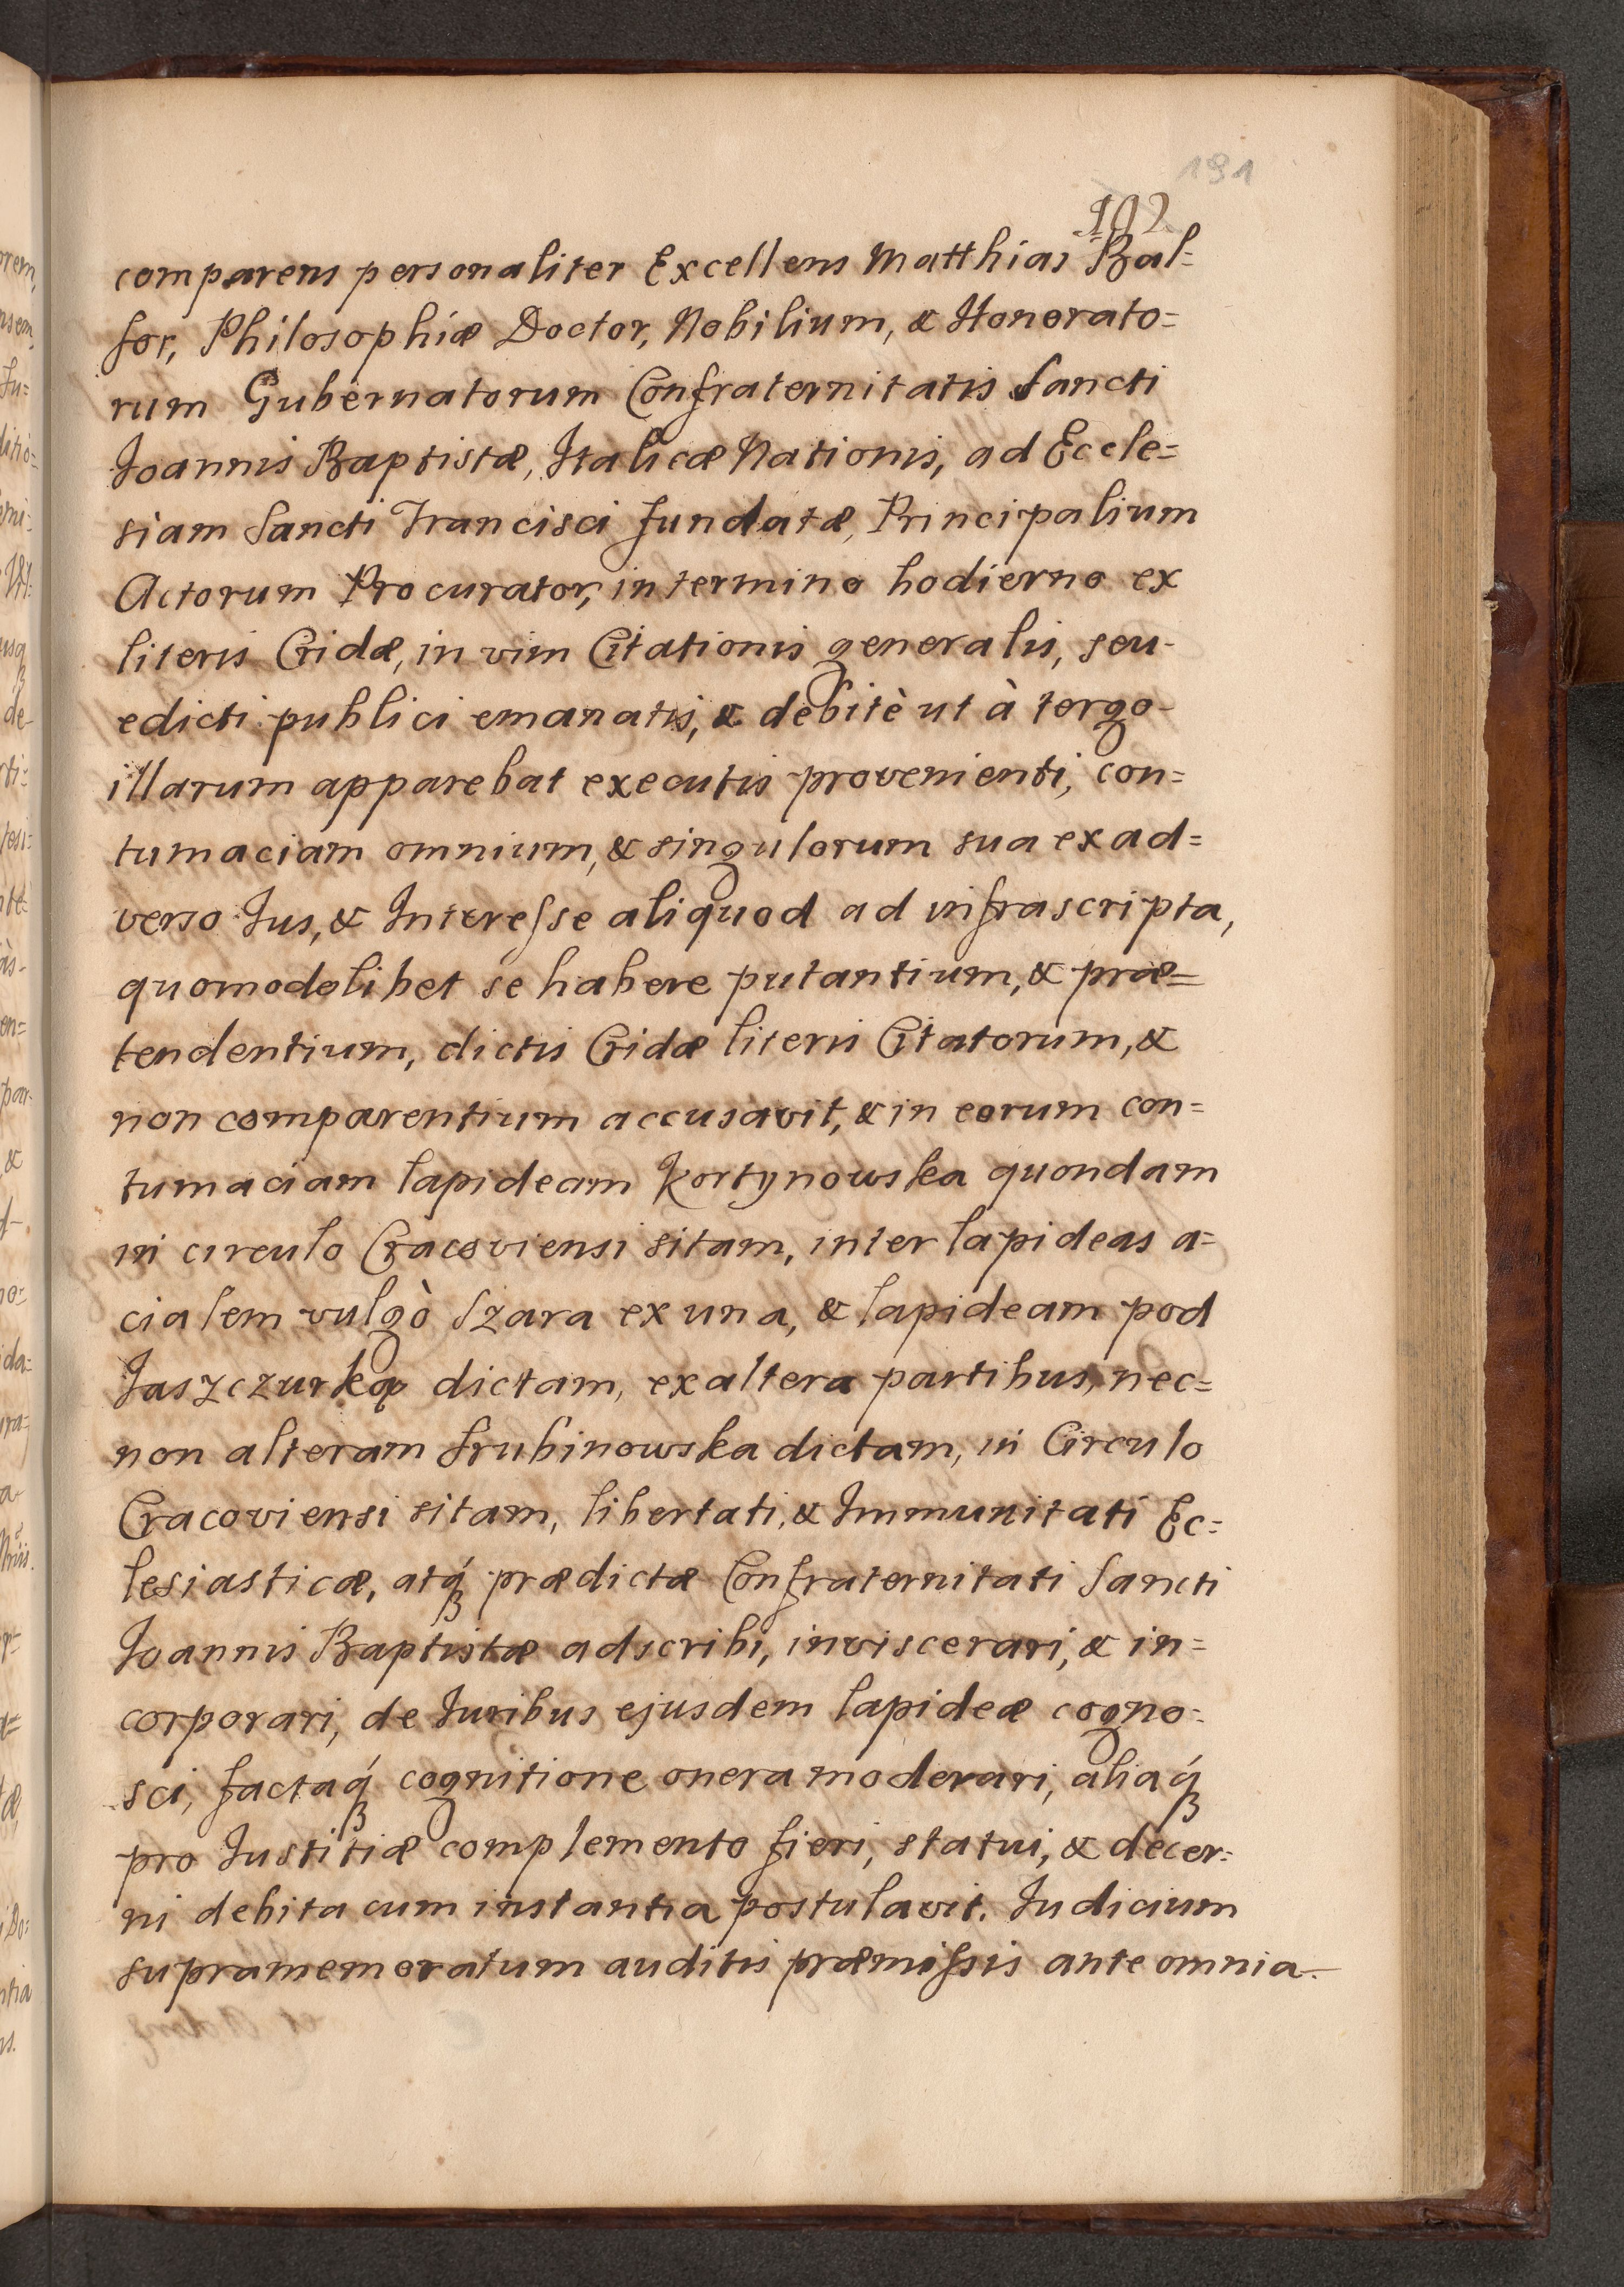 191
192
comparens personaliter Excellens Matthias Bal=
for, Philosophiæ Doctor, Nobilium, & Honorato=
rum Gubernatorum Confraternitatis Sancti
Joannis Baptistæ, Italicæ Nationis, ad Eccle=
siam Sancti Francisci fundatæ, Principalium
Actorum Procurator, in termino hodierno ex
literis Cridæ, in vim Citationis generalis, seu
edicti publici emanatis, & debitè ut à tergo
illarum apparebat executis provenienti, con=
tumaciam omnium, & singulorum sua ex ad=
verso Jus, & Interesse aliquod ad infrascripta,
quomodolibet se habere putantium, & præ=
tendentium, dictis Cridæ literis Citatorum, &
non comparentium accusavit, & in eorum con=
tumaciam lapideam Kortynowska quondam
in circulo Cracoviensi sitam, inter lapideas a=
cialem vulgò Szara ex una, & lapideam pod
Jaszczurką dictam, ex altera partibus, nec=
non alteram Srubinowska dictam, in Circulo
Cracoviensi sitam, libertati, & Immunitati Ec=
lesiasticæ, atq́ prædictæ Confraternitati Sancti
Joannis Baptistæ adscribi, inviscerari, & in=
corporari, de Juribus ejusdem lapideæ cogno=
sci, factaq́ cognitione onera moderari, aliaq́
pro Justitiæ complemento fieri, statui, & decer=
ni debita cum instantia postulavit. Judicium
supramemoratum auditis præmissis ante omnia